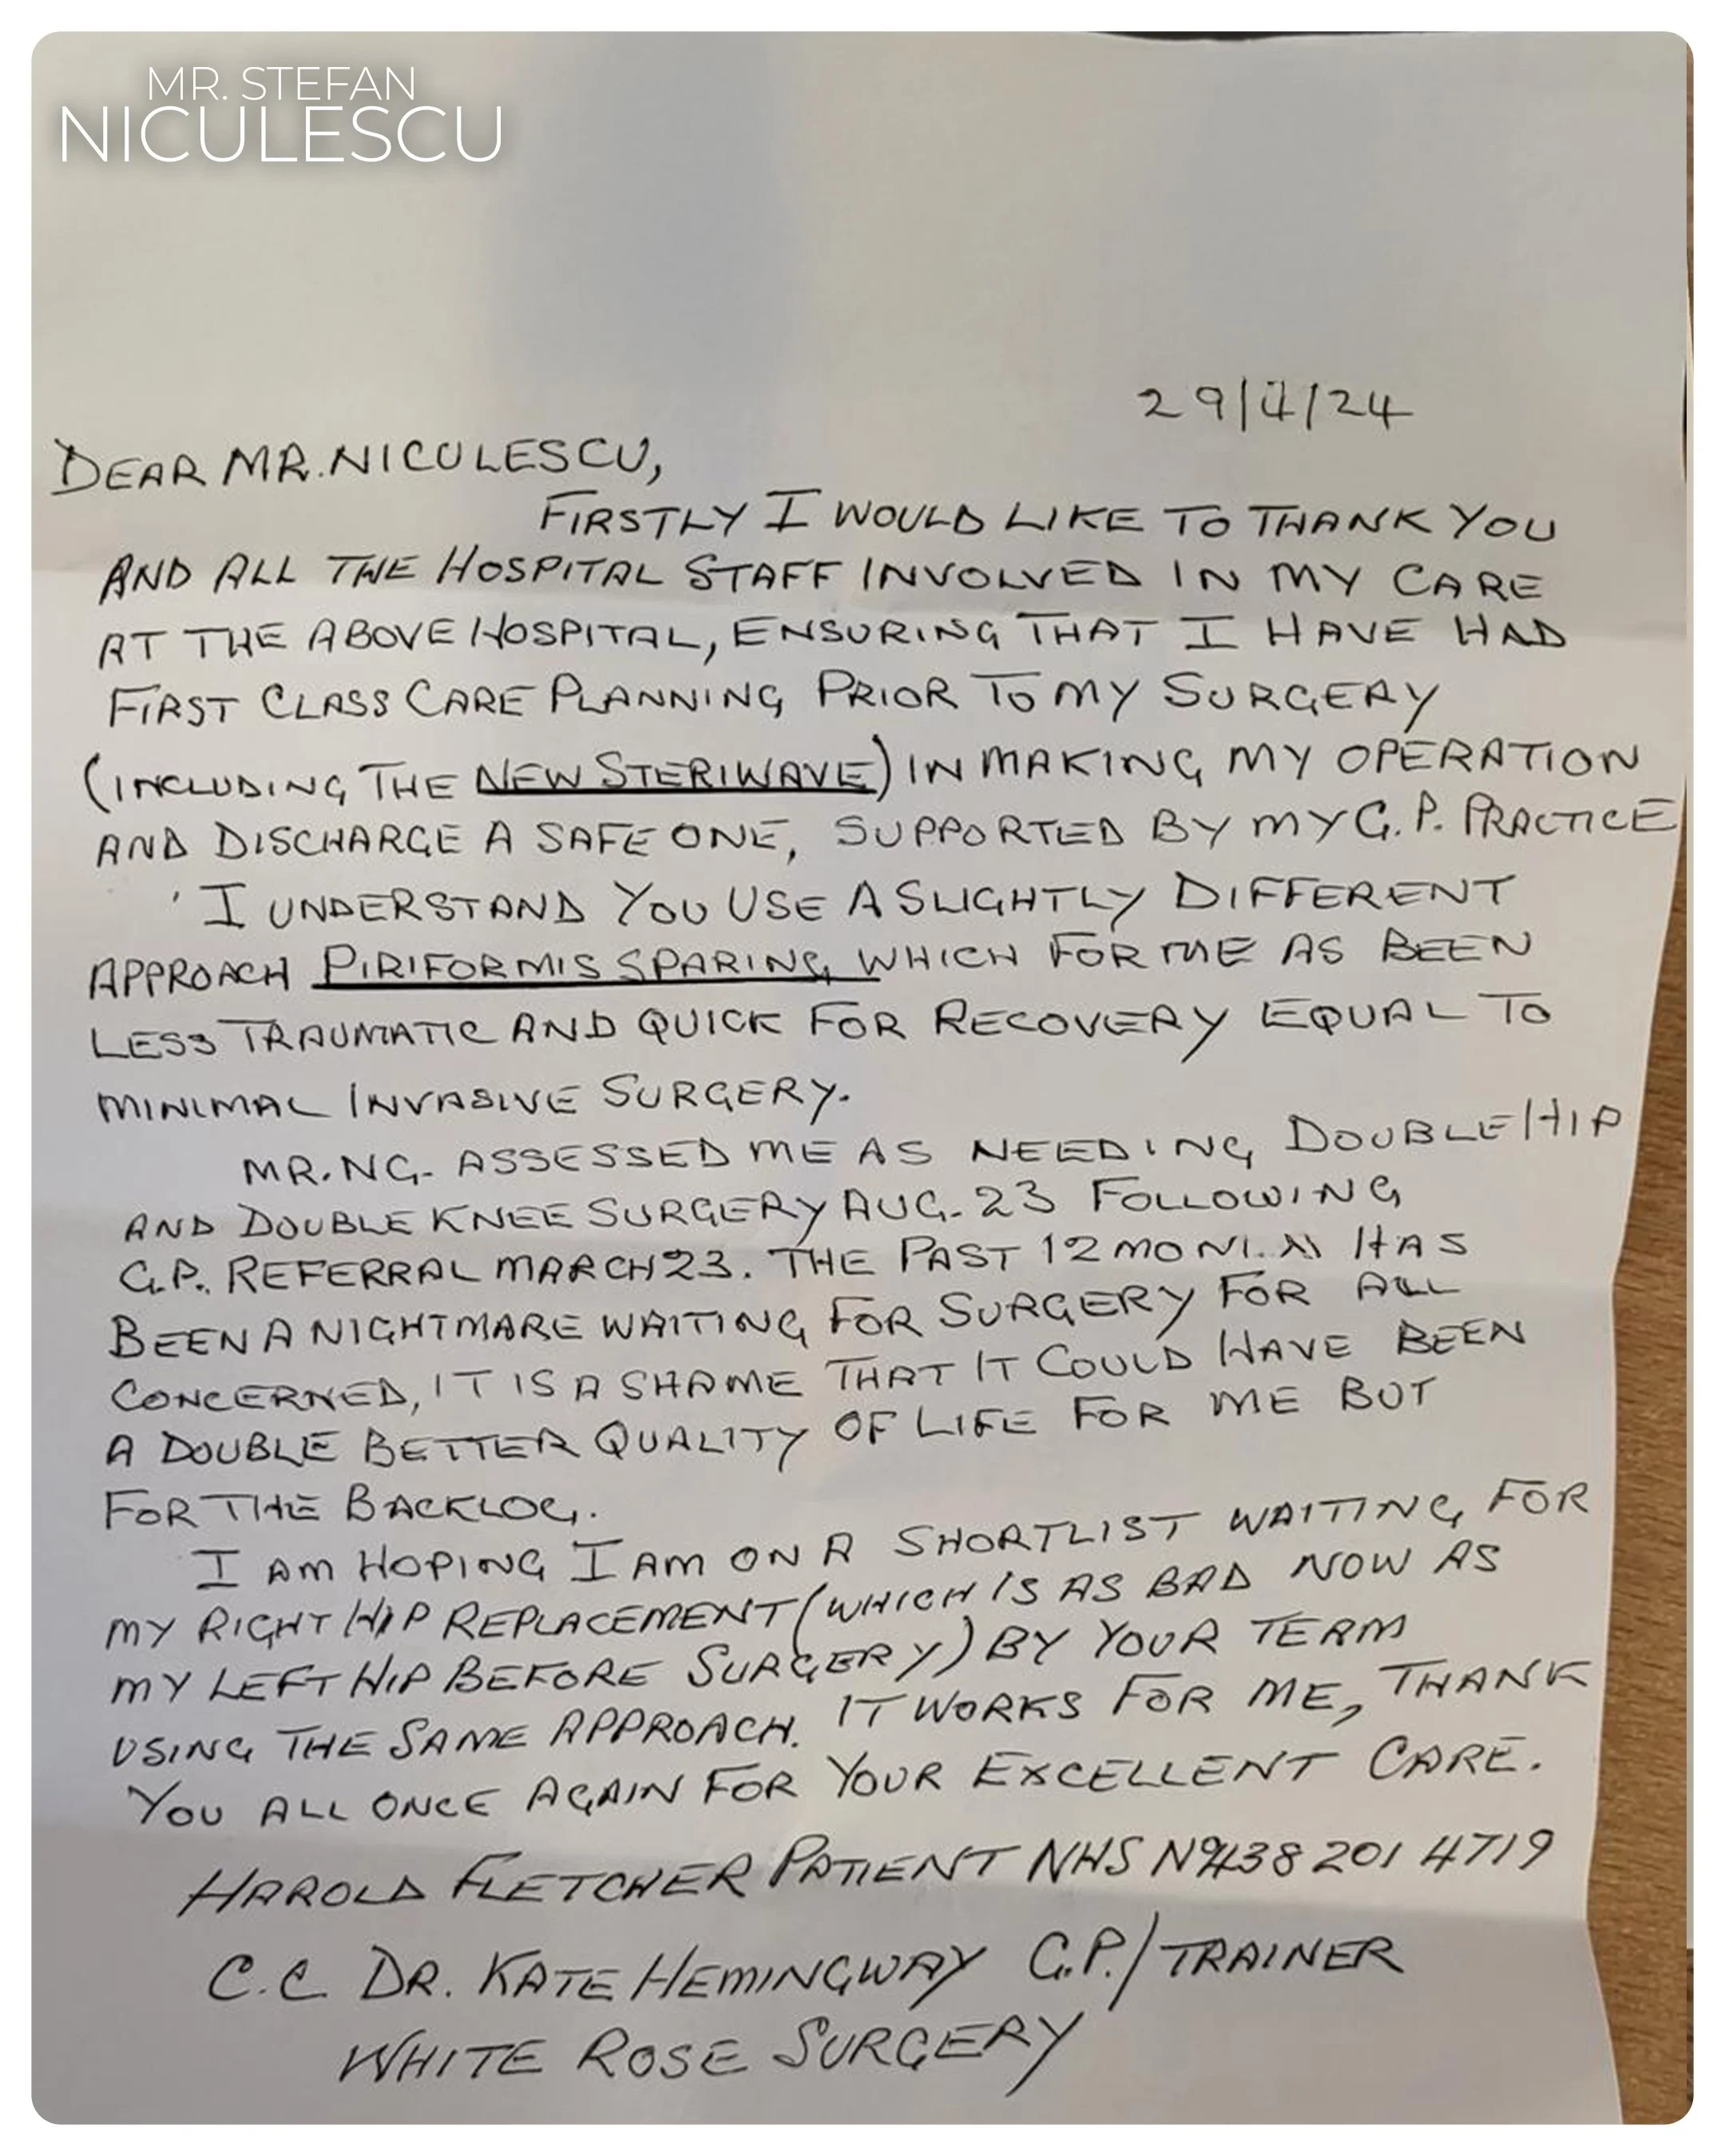 MR. STEFAN
NICULESCU
DEAR MR. NICULESCU,
FIRSTLY I WOULD LIKE TO THANK YOU
AND ALL THE HOSPITAL STAFF INVOLVED IN MY CARE
AT THE ABOVE HOSPITAL, ENSURING THAT I HAVE HAD
FIRST CLASS CARE PLANNING PRIOR TO MY SURGERY
(INCLUDING THE NEW STERIWAVE) IN MAKING MY OPERATION
AND DISCHARGE A SAFE ONE, SUPPORTED BY MY G.P. PRACTICE
I UNDERSTAND YOU USE A SLIGHTLY DIFFERENT
APPROACH PIRIFORMIS SPARING WHICH FOR ME AS BEEN
LESS TRAUMATIC AND QUICK FOR RECOVERY EQUAL TO
MINIMAL INVASIVE SURGERY.
MR. NG. ASSESSED ME AS NEEDING DOUBLE HIP
AND DOUBLE KNEE SURGERY AUG. 23 FOLLOWING
G.P. REFERRAL MARCH 23. THE PAST 12 HAS
BEEN A NIGHTMARE WAITING FOR SURGERY FOR ALL
CONCERNED, IT IS A SHAME THAT IT COULD HAVE BEEN
A DOUBLE BETTER QUALITY OF LIFE FOR ME BUT
FOR THE BACKLOG.
I AM HOPING I AM ON A SHORTLIST WAITING FOR
MY RIGHT HIP REPLACEMENT (WHICH IS AS BAD NOW AS
MY LEFT HIP BEFORE SURGERY) BY YOUR TEAM
USING THE SAME APPROACH. IT WORKS FOR ME, THANK
YOU ALL ONCE AGAIN FOR YOUR EXCELLENT CARE.
HAROLD FLETCHER PATIENT NHS Nº 438 201 4719
C.C DR. KATE HEMINGWAY G.P./TRAINER
WHITE ROSE SURGERY